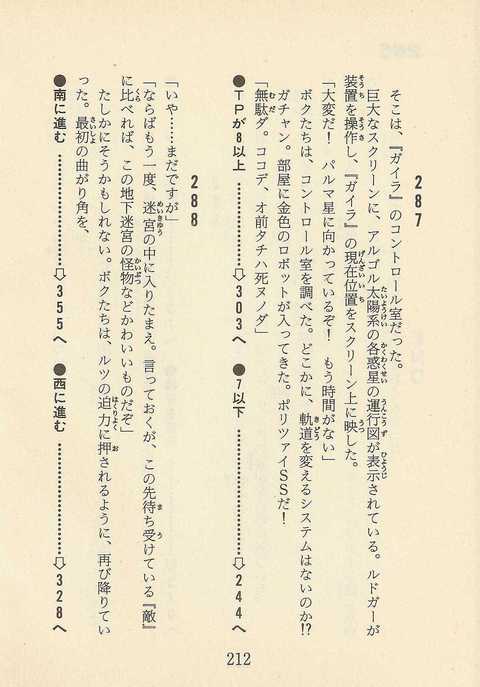 287
そこは、『ガイラ』のコントロール室だった。
巨大なスクリーンに、アルゴル太陽系の各惑星の運行図が表示されている。ルドガーが
装置を操作し、『ガイラ』の現在位置をスクリーン上に映した。
「大変だ！　パルマ星に向かっているぞ！　もう時間がない」
ボクたちは、コントロール室を調べた。どこかに、軌道を変えるシステムはないのか!?
ガチャン。部屋に金色のロボットが入ってきた。ポリツァイSSだ！
「無駄ダ。ココデ、オ前タチハ死ヌノダ」
●TPが8以上…………⇨303へ　●7以下…………⇨244へ
288
「いや……まだですが」
「ならばもう一度、迷宮の中に入りたまえ。言っておくが、この先待ち受けている『敵』
に比べれば、この地下迷宮の怪物などかわいいものだぞ」
たしかにそうかもしれない。ボクたちは、ルツの迫力に押されるように、再び降りてい
った。最初の曲がり角を、
●南に進む…………⇨355へ　●西に進む…………⇨328へ
212